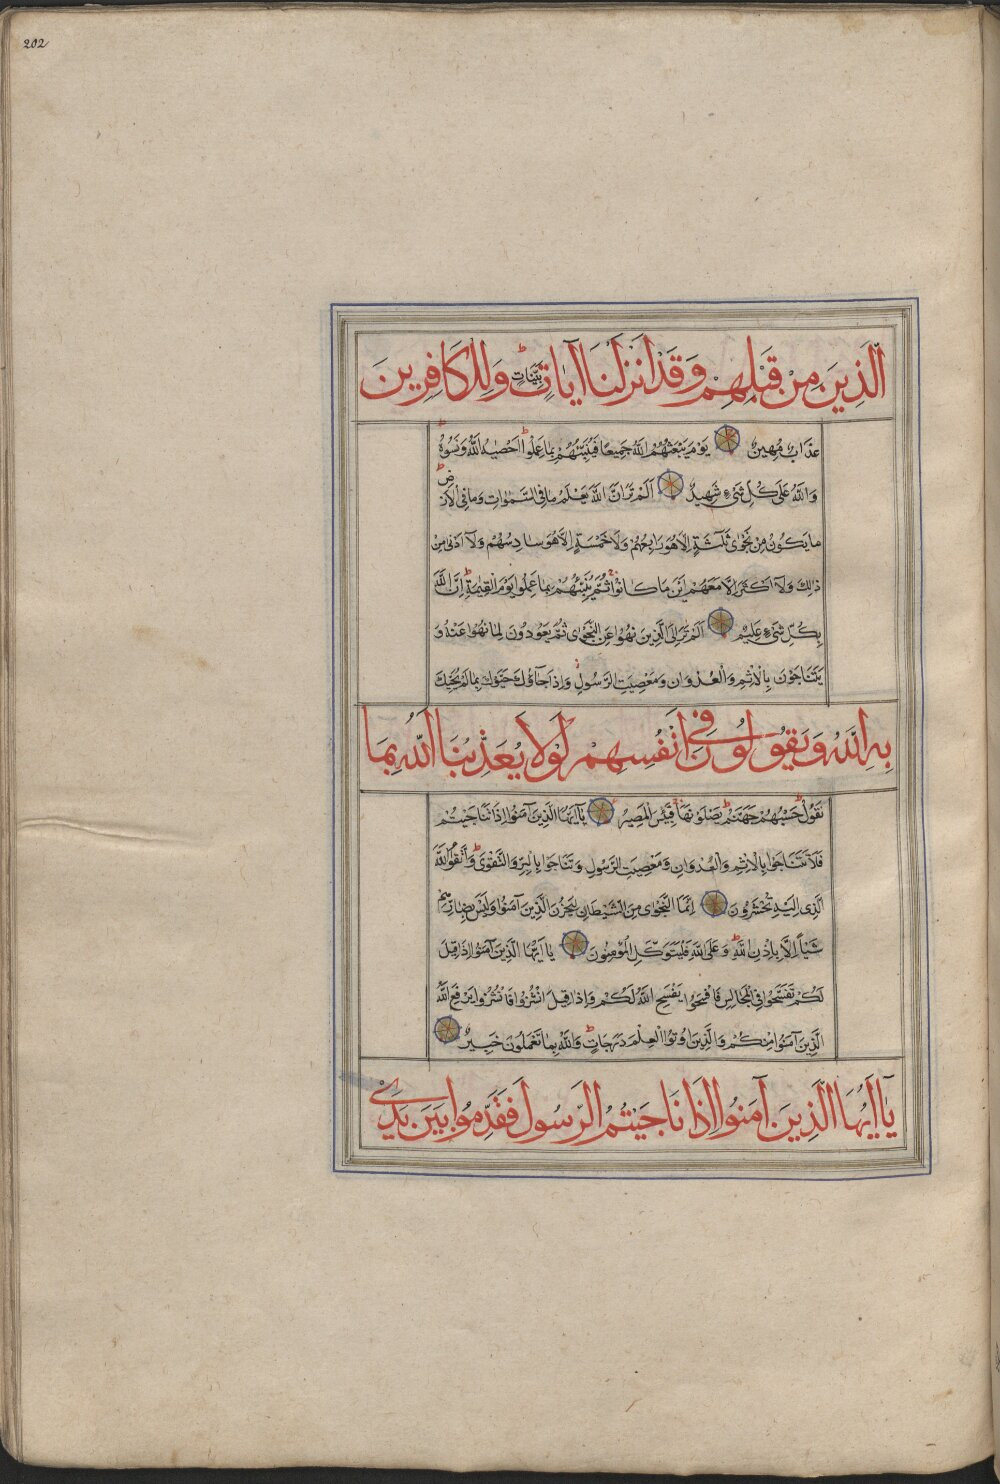 202
الَّذِينَ مِنْ قَبْلِهِمْ وَقَدْ أَنْزَلْنَا آيَاتٍ بَيِّنَاتٍ وَلِلْكَافِرِينَ
عَذَابٌ مُهِينٌ يَوْمَ يَبْعَثُهُمُ اللَّهُ جَمِيعًا فَيُنَبِّئُهُمْ بِمَا عَمِلُوا أَحْصٰيهُ اللَّهُ وَنَسُوهُ
وَاللَّهُ عَلَى كُلِّ شَيْءٍ شَهِيدٌ أَلَمْ تَرَ أَنَّ اللَّهَ يَعْلَمُ مَا فِي السَّمٰوَاتِ وَمَا فِي الْأَرْضِ
مَا يَكُونُ مِنْ نَجْوٰى ثَلٰثَةٍ إِلَّا هُوَ رَابِعُهُمْ وَلَا خَمْسَةٍ إِلَّا هُوَ سَادِسُهُمْ وَلَآ أَدْنٰى مِنْ
ذٰلِكَ وَلَآ أَكْثَرَ إِلَّا مَعَهُمْ أَيْنَ مَا كَانُوا ثُمَّ يُنَبِّئُهُمْ بِمَا عَمِلُوا يَوْمَ الْقِيٰمَةِ إِنَّ اللَّهَ
بِكُلِّ شَيْءٍ عَلِيمٌ أَلَمْ تَرَ إِلَى الَّذِينَ نُهُوا عَنِ النَّجْوٰى ثُمَّ يَعُودُونَ لِمَا نُهُوا عَنْهُ وَ
يَتَنَاجَوْنَ بِالْإِثْمِ وَالْعُدْوَانِ وَمَعْصِيَتِ الرَّسُولِ وَإِذَا جَآؤُكَ حَيَّوْكَ بِمَا لَمْ يُحَيِّكَ
بِهِ اللَّهُ وَيَقُولُونَ فِي أَنْفُسِهِمْ لَوْلَا يُعَذِّبُنَا اللَّهُ بِمَا
نَقُولُ حَسْبُهُمْ جَهَنَّمُ يَصْلَوْنَهَا فَبِئْسَ الْمَصِيرُ يَآ أَيُّهَا الَّذِينَ آمَنُوا إِذَا تَنَاجَيْتُمْ
فَلَا تَتَنَاجَوْا بِالْإِثْمِ وَالْعُدْوَانِ وَمَعْصِيَتِ الرَّسُولِ وَتَنَاجَوْا بِالْبِرِّ وَالتَّقْوٰى وَاتَّقُوا اللَّهَ
الَّذِي إِلَيْهِ تُحْشَرُونَ إِنَّمَا النَّجْوٰى مِنَ الشَّيْطَانِ لِيَحْزُنَ الَّذِينَ آمَنُوا وَلَيْسَ بِضَارِّهِمْ
شَيْئًا إِلَّا بِإِذْنِ اللَّهِ وَعَلَى اللَّهِ فَلْيَتَوَكَّلِ الْمُؤْمِنُونَ يَا أَيُّهَا الَّذِينَ آمَنُوا إِذَا قِيلَ
لَكُمْ تَفَسَّحُوا فِي الْمَجَالِسِ فَافْسَحُوا يَفْسَحِ اللَّهُ لَكُمْ وَإِذَا قِيلَ انْشُزُوا فَانْشُزُوا يَرْفَعِ اللَّهُ
الَّذِينَ آمَنُوا مِنْكُمْ وَالَّذِينَ أُوتُوا الْعِلْمَ دَرَجَاتٍ وَاللَّهُ بِمَا تَعْمَلُونَ خَبِيرٌ
يَآ أَيُّهَا الَّذِينَ آمَنُوا إِذَا نَاجَيْتُمُ الرَّسُولَ فَقَدِّمُوا بَيْنَ يَدَيْ